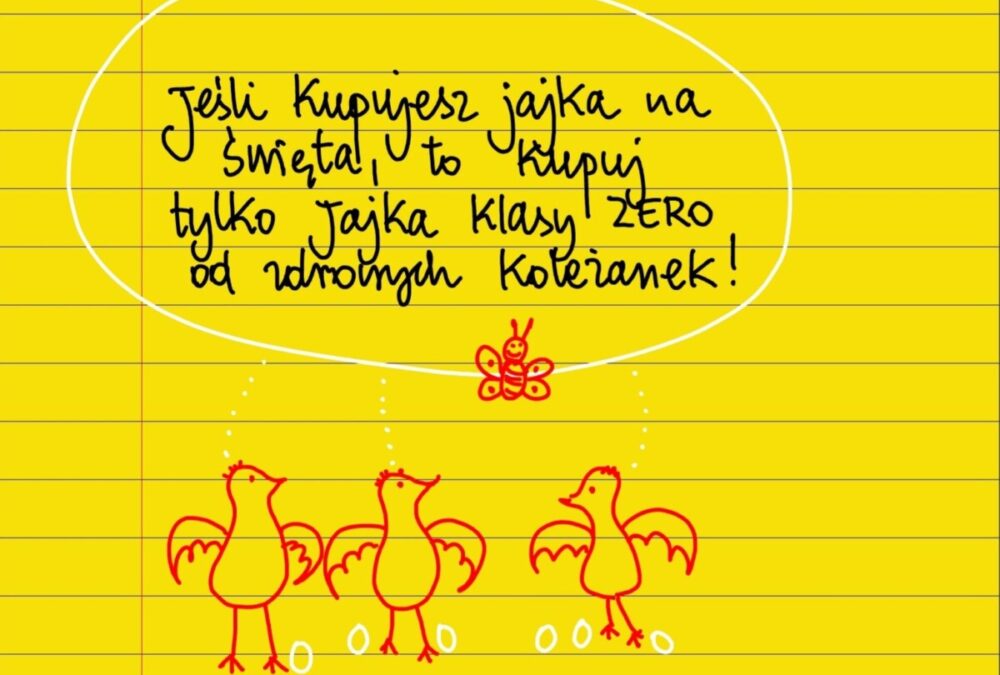 Jeśli kupujesz jajka na
święta, to kupuj
tylko jajka klasy ZERO
od zdrowych koleżanek!